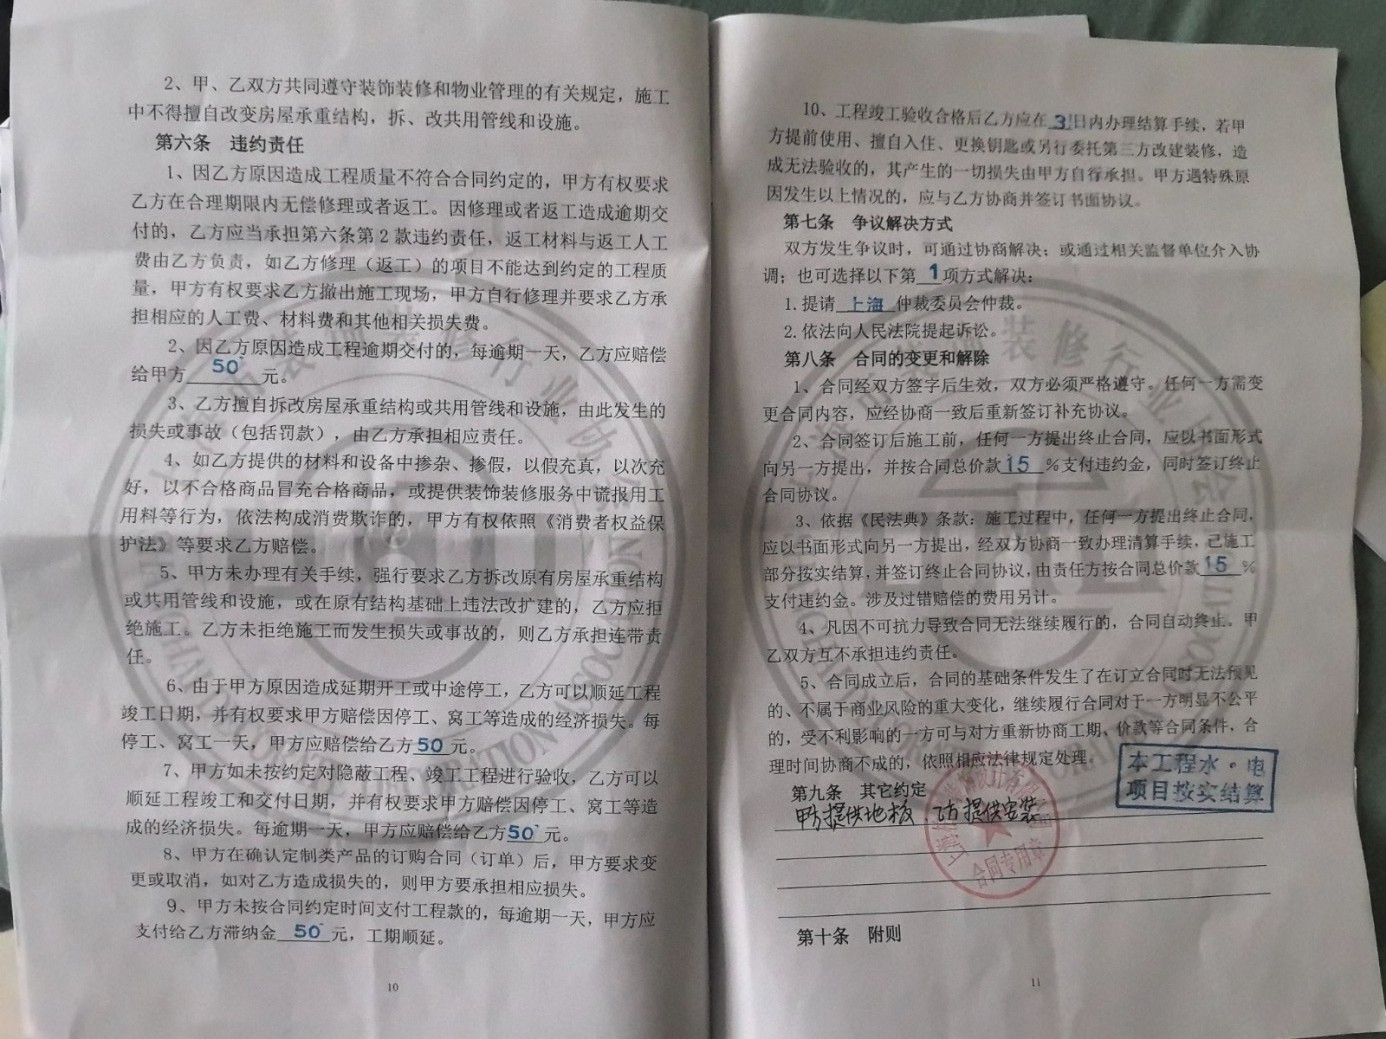 2、甲、乙双方共同遵守装饰装修和物业管理的有关规定，施工
中不得擅自改变房屋承重结构，拆、改共用管线和设施。
第六条 违约责任
1、因乙方原因造成工程质量不符合合同约定的，甲方有权要求
乙方在合理期限内无偿修理或者返工。因修理或者返工造成逾期交
付的，乙方应当承担第六条第2款违约责任，返工材料与返工人工
费由乙方负责，如乙方修理（返工）的项目不能达到约定的工程质
量，甲方有权要求乙方撤出施工现场，甲方自行修理并要求乙方承
担相应的人工费、材料费和其他相关损失费。
2、因乙方原因造成工程逾期交付的，每逾期一天，乙方应赔偿
给甲方 50 元。
3、乙方擅自拆改房屋承重结构或共用管线和设施，由此发生的
损失或事故（包括罚款），由乙方承担相应责任。
4、如乙方提供的材料和设备中掺杂、掺假，以假充真，以次充
好，以不合格商品冒充合格商品，或提供装饰装修服务中谎报用工
用料等行为，依法构成消费欺诈的，甲方有权依照《消费者权益保
护法》等要求乙方赔偿。
5、甲方未办理有关手续，强行要求乙方拆改原有房屋承重结构
或共用管线和设施，或在原有结构基础上违法改扩建的，乙方应拒
绝施工。乙方未拒绝施工而发生损失或事故的，则乙方承担连带责
任。
6、由于甲方原因造成延期开工或中途停工，乙方可以顺延工程
竣工日期，并有权要求甲方赔偿因停工、窝工等造成的经济损失。每
停工、窝工一天，甲方应赔偿给乙方 50 元。
7、甲方如未按约定对隐蔽工程、竣工工程进行验收，乙方可以
顺延工程竣工和交付日期，并有权要求甲方赔偿因停工、窝工等造
成的经济损失。每逾期一天，甲方应赔偿给乙方 50 元。
8、甲方在确认定制类产品的订购合同（订单）后，甲方要求变
更或取消，如对乙方造成损失的，则甲方要承担相应损失。
9、甲方未按合同约定时间支付工程款的，每逾期一天，甲方应
支付给乙方滞纳金 50 元，工期顺延。
10
10、工程竣工验收合格后乙方应在 3 日内办理结算手续，若甲
方提前使用、擅自入住、更换钥匙或另行委托第三方改建装修，造
成无法验收的，其产生的一切损失由甲方自行承担。甲方遇特殊原
因发生以上情况的，应与乙方协商并签订书面协议。
第七条 争议解决方式
双方发生争议时，可通过协商解决；或通过相关监督单位介入协
调；也可选择以下第 1 项方式解决：
1.提请 上海 仲裁委员会仲裁。
2.依法向人民法院提起诉讼。
第八条 合同的变更和解除
1、合同经双方签字后生效，双方必须严格遵守。任何一方需变
更合同内容，应经协商一致后重新签订补充协议。
2、合同签订后施工前，任何一方提出终止合同，应以书面形式
向另一方提出，并按合同总价款 15 %支付违约金，同时签订终止
合同协议。
3、依据《民法典》条款：施工过程中，任何一方提出终止合同，
应以书面形式向另一方提出，经双方协商一致办理清算手续，已施工
部分按实结算，并签订终止合同协议，由责任方按合同总价款 15 %
支付违约金。涉及过错赔偿的费用另计。
4、凡因不可抗力导致合同无法继续履行的，合同自动终止。甲
乙双方互不承担违约责任。
5、合同成立后，合同的基础条件发生了在订立合同时无法预见
的、不属于商业风险的重大变化，继续履行合同对于一方明显不公平
的，受不利影响的一方可与对方重新协商工期、价款等合同条件，合
理时间协商不成的，依照相应法律规定处理。
本工程水·电
项目按实结算
第九条 其它约定
甲方提供地板 乙方提供安装
合同专用章
第十条 附则
11